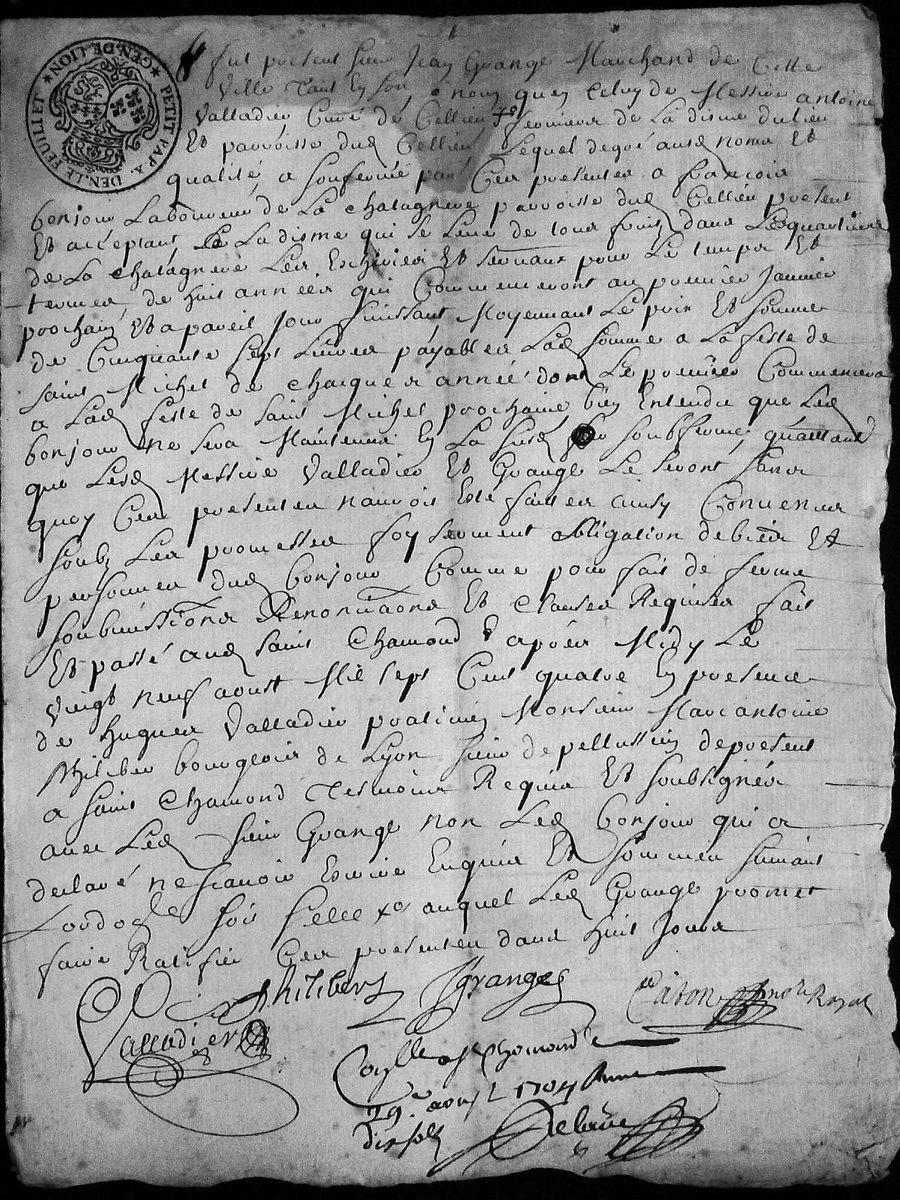 GEN. DE LION
PETIT PAP. A
DEN. LE FEUILLET
fut present sieur Jean Grange Marchand de Cette
Ville tant en son nom quen Celuy de Messire antoine
Valladier Curé de Cellieu fermier de La disme du lieu
Et parroisse dud Cellieu Lequel de gré aud noms Et
qualité a soufermé par Ces presentes a françois
bonjour Laboureur de La Chatagnere parroisse dud Cellieu present
Et acceptant La disme qui se Leve de tous fruits dans Les quartiers
de La Chatagnere Les Et pour Le temps Et
termes de huit années qui Commenceront au premier Janvier
prochain Et a pareil Jour finissant Moyennant Le prix Et somme
de Cinquante sept Livres payables Lad somme a La feste de
saint Michel de chaque année dont Le premier Commencera
a Lad feste de saint Michel prochaine bien Entendu que Led
bonjour ne sera Maintenu En La susd soufferme quautant
que Lesd Messire Valladier Et Grange Le seront sans
quoy Ces presentes nauroit Esté faites ainsy Convenu
soubz Les promesses foy serment obligation de biens Et
personnes dud bonjour Comme pour fait de ferme
soubmissions Renonciations Et Clauses Requises fait
Et passé aud saint Chamond apres Midy Le
vingt neuf aoust Mil sept Cent quatre En presence
de hugues Valladier praticien Monsieur Marc antoine
philibert bourgeois de Lyon sieur de pellussin de present
a saint Chamond tesmoins Requis Et soubsignés
avec Led sieur Grange non Led bonjour qui a
declaré ne scavoir Escrire Enquis Et sommé suivant
Lordoce auquel Led Grange promet
faire Ratifier Ces presentes dans huit Jours
Philibert JGrange Caron Royal
Valladier
Collé a St Chomond Le
29e aoust 1704
dix sols Delarue